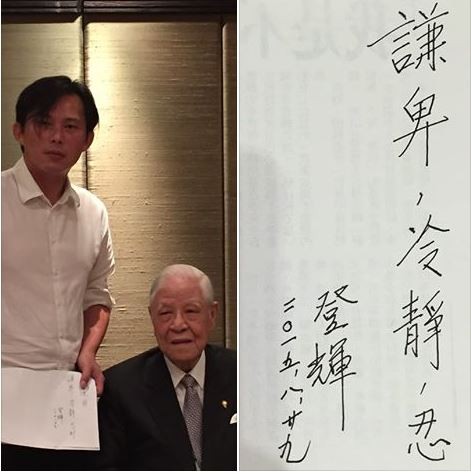 謙卑，冷靜，忍
登輝
二〇一五、八、廿九